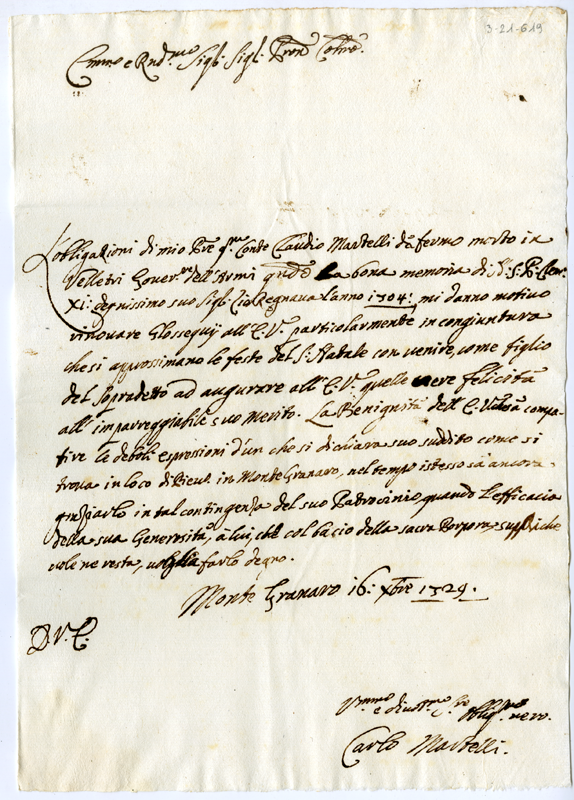 3-21-619
Emmo e Rndmo Sigr Sigr Pron Colmo
L'obligazioni di mio Pre qm Conte Claudio Martelli da fermo morto in
Velletri Goverre dell'Armi qndo la bona memoria di N. S. P. Clem.
XI: degnissimo suo Sigr Zio Regnava l'anno 1704: mi danno motivo
rinovare gl'ossequij all'E. V. particolarmente in congiuntura
che si approssimano le feste del S: Natale con venire, come figlio
del sopradetto ad augurare all' E. V. quelle vere felicità
all' impareggiabile suo merito. La Benignità dell' E. Vostra compa-
tire le deboli espressioni d'un che si dichiara suo suddito come si
trova in loco di in Monte Granaro, nel tempo istesso sà ancora
graziarlo in tal contingenza del suo Padrocinio, quando l'efficacia
della sua Generosità, à lui, che col bacio della sacra Porpora, suppliche
vole ne resta, voglia farlo degno.
Monte Granaro 16: Xbre 1729.
D. V. E.
Vmmo e divotmo Sre obligmo vero.
Carlo Martelli.